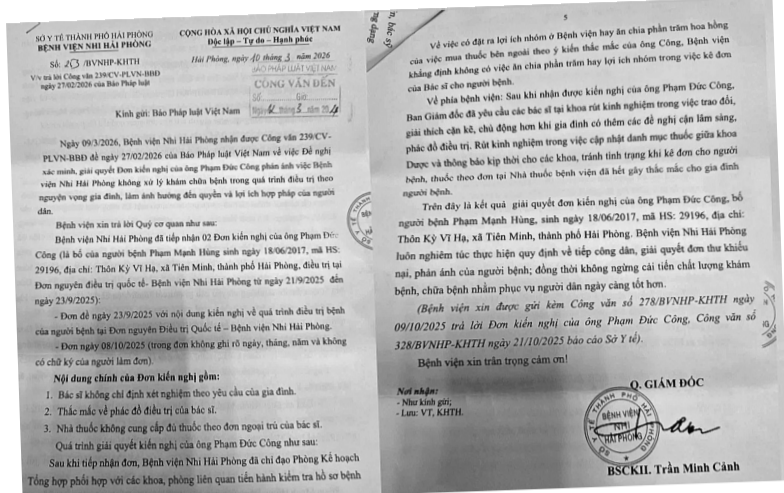 SỞ Y TẾ THÀNH PHỐ HẢI PHÒNG
BỆNH VIỆN NHI HẢI PHÒNG
Số: 253/BVNHP-KHTH
V/v trả lời Công văn 239/CV-PLVN-BBĐ
ngày 27/02/2026 của Báo Pháp luật
CỘNG HÒA XÃ HỘI CHỦ NGHĨA VIỆT NAM
Độc lập – Tự do – Hạnh phúc
Hải Phòng, ngày 10 tháng 3 năm 2026
BÁO PHÁP LUẬT VIỆT NAM
CÔNG VĂN ĐẾN
Kính gửi: Báo Pháp luật Việt Nam
Ngày 09/3/2026, Bệnh viện Nhi Hải Phòng nhận được Công văn 239/CV-
PLVN-BBĐ đề ngày 27/02/2026 của Báo Pháp luật Việt Nam về việc Đề nghị
xác minh, giải quyết Đơn kiến nghị của ông Phạm Đức Công phản ánh việc Bệnh
viện Nhi Hải Phòng không xử lý khám chữa bệnh trong quá trình điều trị theo
nguyện vọng gia đình, làm ảnh hưởng đến quyền và lợi ích hợp pháp của người
dân.
Bệnh viện xin trả lời Quý cơ quan như sau:
Bệnh viện Nhi Hải Phòng đã tiếp nhận 02 Đơn kiến nghị của ông Phạm Đức
Công (là bố của người bệnh Phạm Mạnh Hùng, sinh ngày 18/06/2017, mã HS:
29196, địa chỉ: Thôn Kỳ Vĩ Hạ, xã Tiên Minh, thành phố Hải Phòng, điều trị tại
Đơn nguyên điều trị quốc tế- Bệnh viện Nhi Hải Phòng từ ngày 21/9/2025 đến
ngày 23/9/2025):
- Đơn đề ngày 23/9/2025 với nội dung kiến nghị về quá trình điều trị bệnh
của người bệnh tại Đơn nguyên Điều trị Quốc tế – Bệnh viện Nhi Hải Phòng.
- Đơn ngày 08/10/2025 (trong đơn không ghi rõ ngày, tháng, năm và không
có chữ ký của người làm đơn).
Nội dung chính của Đơn kiến nghị gồm:
1. Bác sĩ không chỉ định xét nghiệm theo yêu cầu của gia đình.
2. Thắc mắc về phác đồ điều trị của bác sĩ.
3. Nhà thuốc không cung cấp đủ thuốc theo đơn ngoại trú của bác sĩ.
Quá trình giải quyết kiến nghị của ông Phạm Đức Công như sau:
Sau khi tiếp nhận đơn, Bệnh viện Nhi Hải Phòng đã chỉ đạo Phòng Kế hoạch
Tổng hợp phối hợp với các khoa, phòng liên quan tiến hành kiểm tra hồ sơ bệnh
5
Về việc có đặt ra lợi ích nhóm ở Bệnh viện hay ăn chia phần trăm hoa hồng
của việc mua thuốc bên ngoài theo ý kiến thắc mắc của ông Công, Bệnh viện
khẳng định không có việc ăn chia phần trăm hay lợi ích nhóm trong việc kê đơn
của Bác sĩ cho người bệnh.
Về phía bệnh viện: Sau khi nhận được kiến nghị của ông Phạm Đức Công,
Ban Giám đốc đã yêu cầu các bác sĩ tại khoa rút kinh nghiệm trong việc trao đổi,
giải thích cặn kẽ, chủ động hơn khi gia đình có thêm các đề nghị cận lâm sàng,
phác đồ điều trị. Rút kinh nghiệm trong việc cập nhật danh mục thuốc giữa khoa
Dược và thông báo kịp thời cho các khoa, tránh tình trạng khi kê đơn cho người
bệnh, thuốc theo đơn tại Nhà thuốc bệnh viện đã hết gây thắc mắc cho gia đình
người bệnh.
Trên đây là kết quả giải quyết đơn kiến nghị của ông Phạm Đức Công, bố
người bệnh Phạm Mạnh Hùng, sinh ngày 18/06/2017, mã HS: 29196, địa chỉ:
Thôn Kỳ Vĩ Hạ, xã Tiên Minh, thành phố Hải Phòng. Bệnh viện Nhi Hải Phòng
luôn nghiêm túc thực hiện quy định về tiếp công dân, giải quyết đơn thư khiếu
nại, phản ánh của người bệnh; đồng thời không ngừng cải tiến chất lượng khám
bệnh, chữa bệnh nhằm phục vụ người dân ngày càng tốt hơn.
(Bệnh viện xin được gửi kèm Công văn số 278/BVNHP-KHTH ngày
09/10/2025 trả lời Đơn kiến nghị của ông Phạm Đức Công, Công văn số
328/BVNHP-KHTH ngày 21/10/2025 báo cáo Sở Y tế).
Bệnh viện xin trân trọng cảm ơn!
Nơi nhận:
- Như kính gửi;
- Lưu: VT, KHTH.
Q. GIÁM ĐỐC
BỆNH VIỆN
NHI
HẢI PHÒNG
BSCKII. Trần Minh Cảnh